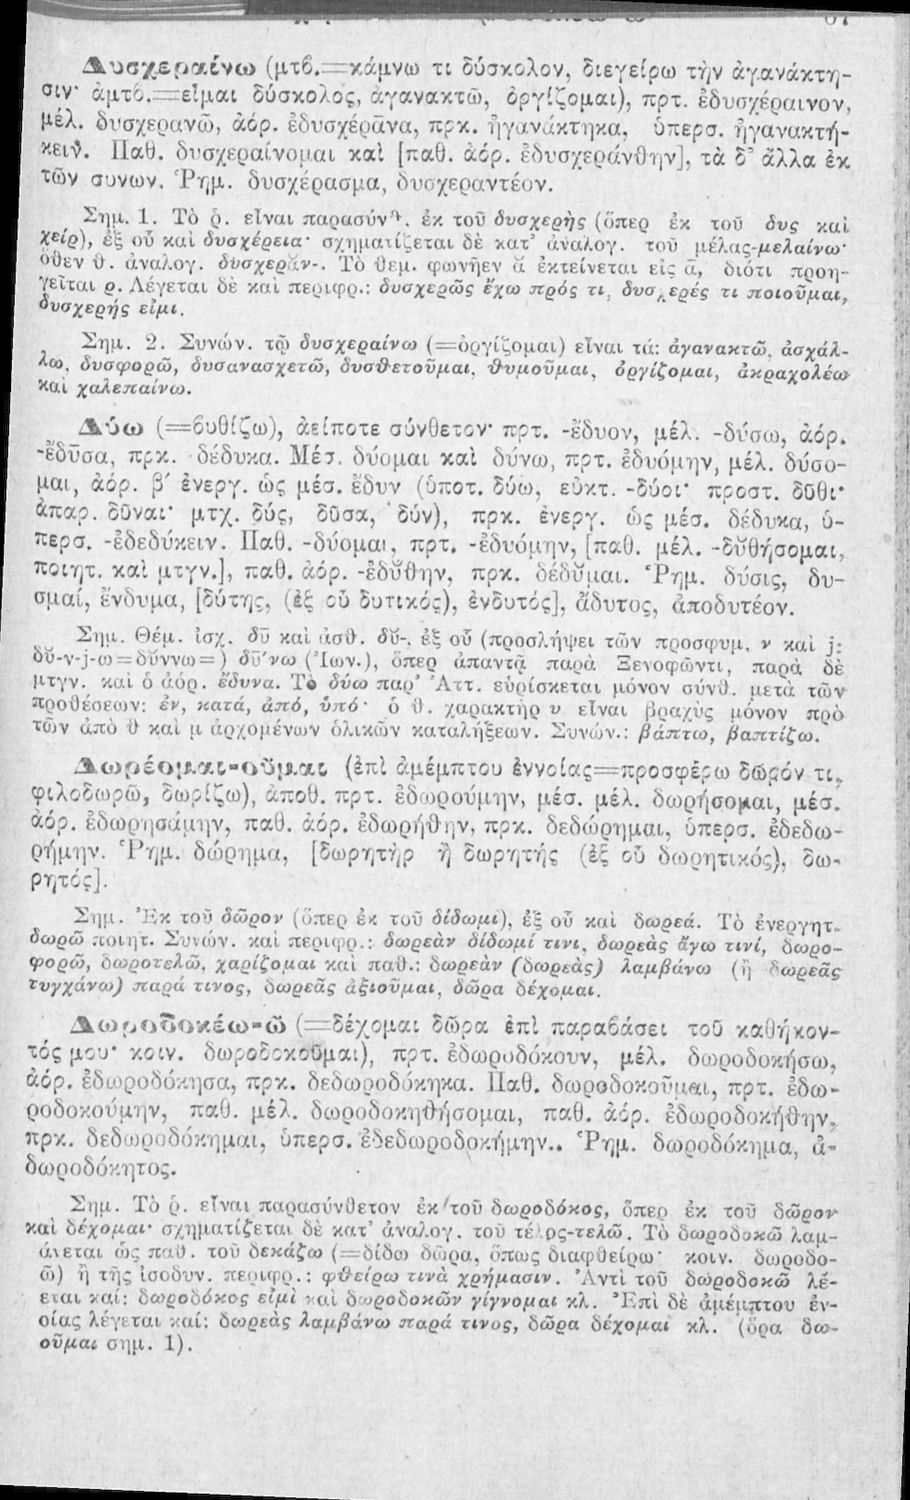 67
Δυσχεραίνω (μτβ.=κάμνω τι δύσκολον, διεγείρω τὴν ἀγανάκτη-
σιν· ἀμτβ.=εἶμαι δύσκολος, ἀγανακτῶ, ὀργίζομαι), πρτ. ἐδυσχέραινον,
μέλ. δυσχερανῶ, ἀόρ. ἐδυσχέρᾱνα, πρκ. ἠγανάκτηκα, ὑπερσ. ἠγανακτή-
κειν. Παθ. δυσχεραίνομαι καὶ [παθ. ἀόρ. ἐδυσχεράνθην], τὰ δ’ ἄλλα ἐκ
τῶν συνων. Ῥημ. δυσχέρασμα, δυσχεραντέον.
Σημ. 1. Τὸ ῥ. εἶναι παρασύνθ. ἐκ τοῦ δυσχερὴς (ὅπερ ἐκ τοῦ δυς καὶ
χείρ), ἐξ οὗ καὶ δυσχέρεια· σχηματίζεται δὲ κατ’ ἀναλογ. τοῦ μέλας-μελαίνω·
ὅθεν θ. ἀναλογ. δυσχερᾰν-. Τὸ θεμ. φωνῆεν ᾰ ἐκτείνεται εἰς ᾱ, διότι προη-
γεῖται ρ. Λέγεται δὲ καὶ περιφρ.: δυσχερῶς ἔχω πρός τι, δυσχερές τι ποιοῦμαι,
δυσχερής εἰμι.
Σημ. 2. Συνών. τῷ δυσχεραίνω (=ὀργίζομαι) εἶναι τά: ἀγανακτῶ, ἀσχάλ-
λω, δυσφορῶ, δυσανασχετῶ, δυσθετοῦμαι, θυμοῦμαι, ὀργίζομαι, ἀκραχολέω
καὶ χαλεπαίνω.
Δύω (=βυθίζω), ἀείποτε σύνθετον· πρτ. -ἔδυον, μέλ. -δύσω, ἀόρ.
-ἔδῡσα, πρκ. -δέδυκα. Μέσ. δύομαι καὶ δύνω, πρτ. ἐδυόμην, μέλ. δύσο-
μαι, ἀόρ. β΄ ἐνεργ. ὡς μέσ. ἔδυν (ὑποτ. δύω, εὐκτ. -δύοι· προστ. δῦθι·
ἀπαρ. δῦναι· μτχ. δύς, δῦσα, δύν), πρκ. ἐνεργ. ὡς μέσ. δέδυκα, ὑ-
περσ. -ἐδεδύκειν. Παθ. -δύομαι, πρτ. -ἐδυόμην, [παθ. μέλ. -δῠθήσομαι,
ποιητ. καὶ μτγν.], παθ. ἀόρ. -ἐδῠ́θην, πρκ. δέδῠμαι. Ῥημ. δύσις, δυ-
σμαί, ἔνδυμα, [δύτης, (ἐξ οὗ δυτικός), ἐνδυτός], ἄδυτος, ἀποδυτέον.
Σημ. Θέμ. ἰσχ. δῡ καὶ ἀσθ. δῠ-, ἐξ οὗ (προσλήψει τῶν προσφυμ. ν καὶ j:
δῠ-ν-j-ω=δῠννω=) δῡ́νω (Ἰων.), ὅπερ ἀπαντᾷ παρὰ Ξενοφῶντι, παρὰ δὲ
μτγν. καὶ ὁ ἀόρ. ἔδυνα. Τὸ δύω παρ’ Ἀττ. εὑρίσκεται μόνον σύνθ. μετὰ τῶν
προθέσεων: ἐν, κατά, ἀπό, ὑπό· ὁ θ. χαρακτὴρ υ εἶναι βραχὺς μόνον πρὸ
τῶν ἀπὸ θ καὶ μ ἀρχομένων ὁλικῶν καταλήξεων. Συνών.: βάπτω, βαπτίζω.
Δωρέομαι-οῦμαι (ἐπὶ ἀμέμπτου ἐννοίας=προσφέρω δῶρόν τι,
φιλοδωρῶ, δωρίζω), ἀποθ. πρτ. ἐδωρούμην, μέσ. μέλ. δωρήσομαι, μέσ.
ἀόρ. ἐδωρησάμην, παθ. ἀόρ. ἐδωρήθην, πρκ. δεδώρημαι, ὑπερσ. ἐδεδω-
ρήμην. Ῥημ. δώρημα, [δωρητὴρ ἢ δωρητής (ἐξ οὗ δωρητικός), δω-
ρητός].
Σημ. Ἐκ τοῦ δῶρον (ὅπερ ἐκ τοῦ δίδωμι), ἐξ οὗ καὶ δωρεά. Τὸ ἐνεργητ.
δωρῶ ποιητ. Συνών. καὶ περιφρ.: δωρεὰν δίδωμί τινι, δωρεὰς ἄγω τινί, δωρο-
φορῶ, δωροτελῶ, χαρίζομαι καὶ παθ.: δωρεὰν (δωρεὰς) λαμβάνω (ἢ δωρεᾶς
τυγχάνω) παρά τινος, δωρεᾶς ἀξιοῦμαι, δῶρα δέχομαι.
Δωροδοκέω-ῶ (=δέχομαι δῶρα ἐπὶ παραβάσει τοῦ καθήκον-
τός μου· κοιν. δωροδοκοῦμαι), πρτ. ἐδωροδόκουν, μέλ. δωροδοκήσω,
ἀόρ. ἐδωροδόκησα, πρκ. δεδωροδόκηκα. Παθ. δωροδοκοῦμαι, πρτ. ἐδω-
ροδοκούμην, παθ. μέλ. δωροδοκηθήσομαι, παθ. ἀόρ. ἐδωροδοκήθην,
πρκ. δεδωροδόκημαι, ὑπερσ. ἐδεδωροδοκήμην.. Ῥημ. δωροδόκημα, ἀ-
δωροδόκητος.
Σημ. Τὸ ῥ. εἶναι παρασύνθετον ἐκ τοῦ δωροδόκος, ὅπερ ἐκ τοῦ δῶρον
καὶ δέχομαι· σχηματίζεται δὲ κατ’ ἀναλογ. τοῦ τέλος-τελῶ. Τὸ δωροδοκῶ λαμ-
άνεται ὡς παθ. τοῦ δεκάζω (=δίδω δῶρα, ὅπως διαφθείρω· κοιν. δωροδο-
ῶ) ἢ τῆς ἰσοδυν. περιφρ.: φθείρω τινὰ χρήμασιν. Ἀντὶ τοῦ δωροδοκῶ λέ-
εται καί: δωροδόκος εἰμὶ καὶ δωροδοκῶν γίγνομαι κλ. Ἐπὶ δὲ ἀμέμπτου ἐν-
οίας λέγεται καί: δωρεὰς λαμβάνω παρά τινος, δῶρα δέχομαι κλ. (ὅρα δω-
οῦμαι σημ. 1).